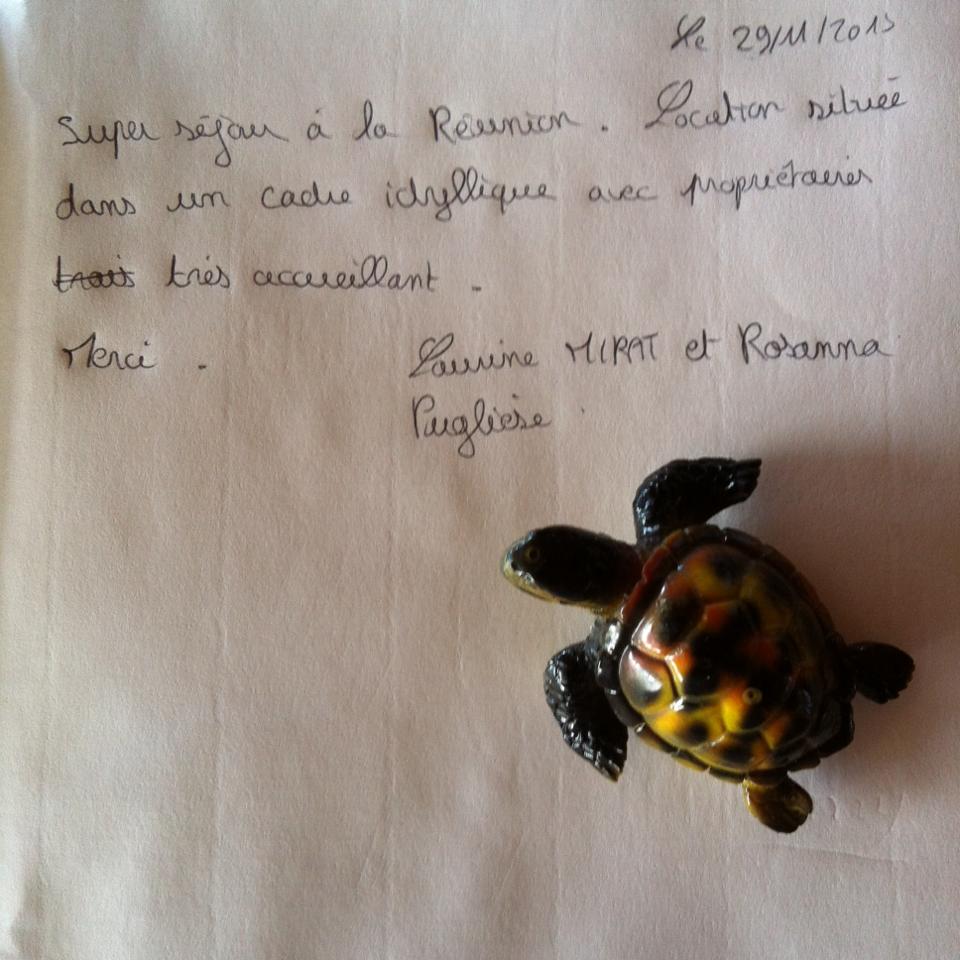 Le 29/11/2013
Super séjour à la Réunion. Location située
dans un cadre idyllique avec propriétaires
trais très accueillant.
Merci.
Laurine MIRAT et Rosanna
Pugliese